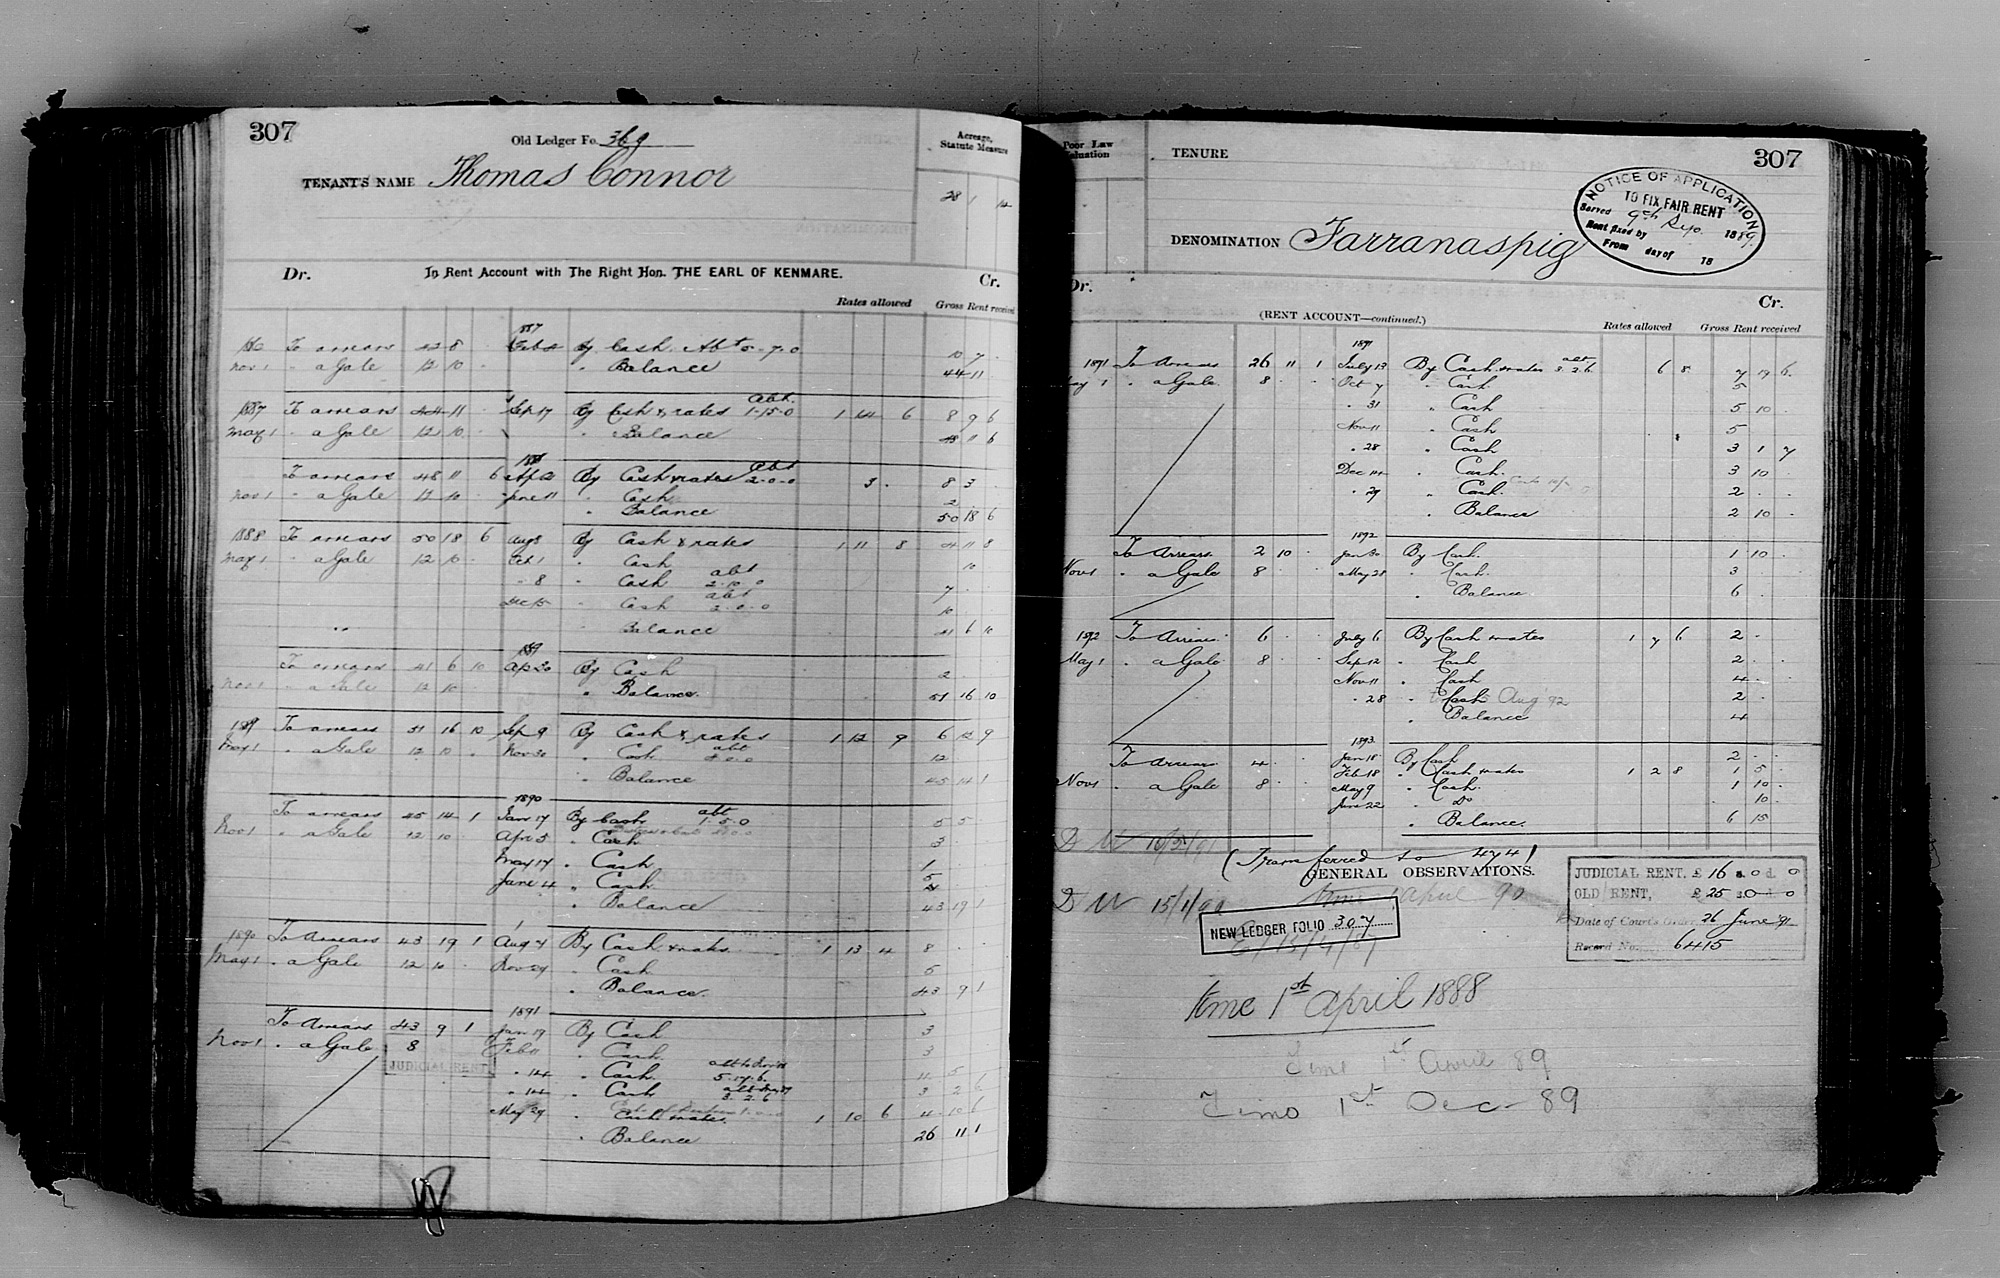 307
Old Ledger Fo. 369
Acreage, Statute Measure
TENANT'S NAME Thomas Connor
28 1 14
Dr. In Rent Account with The Right Hon. THE EARL OF KENMARE. Cr.
Rates allowed Gross Rent received
1887
To arrears 42 8 Feb 8 By Cash Abt 5-7-0 10 7
Nov 1 " a Gale 12 10 " Balance 44 11
1887 To arrears 44 11 Sep 17 By Cash & rates Abt 1-15-0 1 14 6 8 9 6
May 1 " a Gale 12 10 " Balance 48 11 6
To arrears 48 11 6 By Cash & rates Abt 2-0-0 3 8 3
Nov 1 " a Gale 12 10 June 11 " Cash 2
" Balance 50 18 6
1888 To arrears 50 18 6 Aug 8 By Cash & rates 1 11 8 4 11 8
May 1 " a Gale 12 10 Oct 1 " Cash 10
" 8 " Cash abt 2-10-0 7
Dec 15 " Cash abt 2-0-0 10
Balance 41 6 10
1889
To arrears 41 6 10 Ap 30 By Cash 2
Nov 1 " a Gale 12 10 " Balance 51 16 10
1889 To arrears 51 16 10 Sep 9 By Cash & rates 1 12 9 6 12 9
May 1 " a Gale 12 10 Nov 30 " Cash abt 12
" Balance 45 14 1
1890
To arrears 45 14 1 Jan 17 By Cash abt 1-5-0 5 5
Nov 1 " a Gale 12 10 Apr 5 " Cash 3
May 17 " Cash 1
June 4 " Cash 5
" Balance 43 19 1
1890 To Arrears 43 19 1 Aug 7 By Cash & rates 1 13 4 8
May 1 " a Gale 12 10 Nov 24 " Cash 5
" Balance 43 9 1
1891
To Arrears 43 9 1 Jan 19 By Cash 3
Nov 1 " a Gale 8 Feb 11 " Cash 3
JUDICIAL RENT
" 14 " Cash 5.17.6 11 5
" 14 " Cash 3 2 6 3 2 6
May 27 " Cash & rates 1 10 6 4 10 6
" Balance 26 11 1
Poor Law Valuation
TENURE
307
NOTICE OF APPLICATION
TO FIX FAIR RENT
Served 9th 1889
Rent fixed by
From day of 18
DENOMINATION Farranaspig
Dr. Cr.
(RENT ACCOUNT—continued.)
Rates allowed Gross Rent received
1891
1891 To Arrears 26 11 1 July 13 By Cash & rates abt 3.2.6 6 8 7 19 6
May 1 " a Gale 8 Oct 7 " Cash 5
" 31 " Cash 5 10
Nov 11 " Cash 5
" 28 " Cash 3 1 7
Dec 14 " Cash 3 10
" 29 " Cash 2
" Balance 2 10
1892
To Arrears 2 10 Jan 30 By Cash 1 10
Nov 1 " a Gale 8 May 28 " Cash 3
" Balance 6
1892 To Arrears 6 July 6 By Cash & rates 1 7 6 2
May 1 " a Gale 8 Sep 12 " Cash 2
Nov 11 " Cash 4
" 28 " Cash Aug 92 2
" Balance 4
1893
To Arrears 4 Jan 18 By Cash 2
Feb 18 " Cash & rates 1 2 8 1 5
Nov 1 " a Gale 8 May 9 " Cash 1 10
June 22 " Do 10
" Balance 6 15
(Transferred to 474)
GENERAL OBSERVATIONS.
time 1 April 90
15/1/90
NEW LEDGER FOLIO 307
JUDICIAL RENT, £ 16 s. 0 d. 0
OLD RENT, £ 25 s. 0 d. 0
Date of Court's Order 26 June 91
Record No. 6415
time 1st April 1888
Time 1st April 89
Time 1st Dec 89